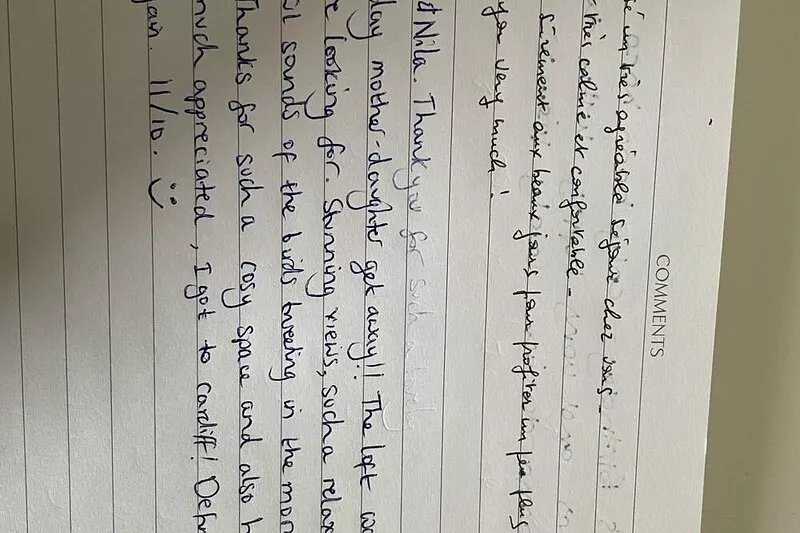 COMMENTS
un très agréable séjour chez vous.
très calme et confortable -
sûrement aux beaux jours pour profiter un peu plus
you very much!
& Nila. Thank you for such a
day mother-daughter get away!! The loft
looking for. Stunning views, such a relax
sounds of the birds tweeting in the mor
Thanks for such a cosy space and also
much appreciated, I got to cardiff! Def
11/10. :)